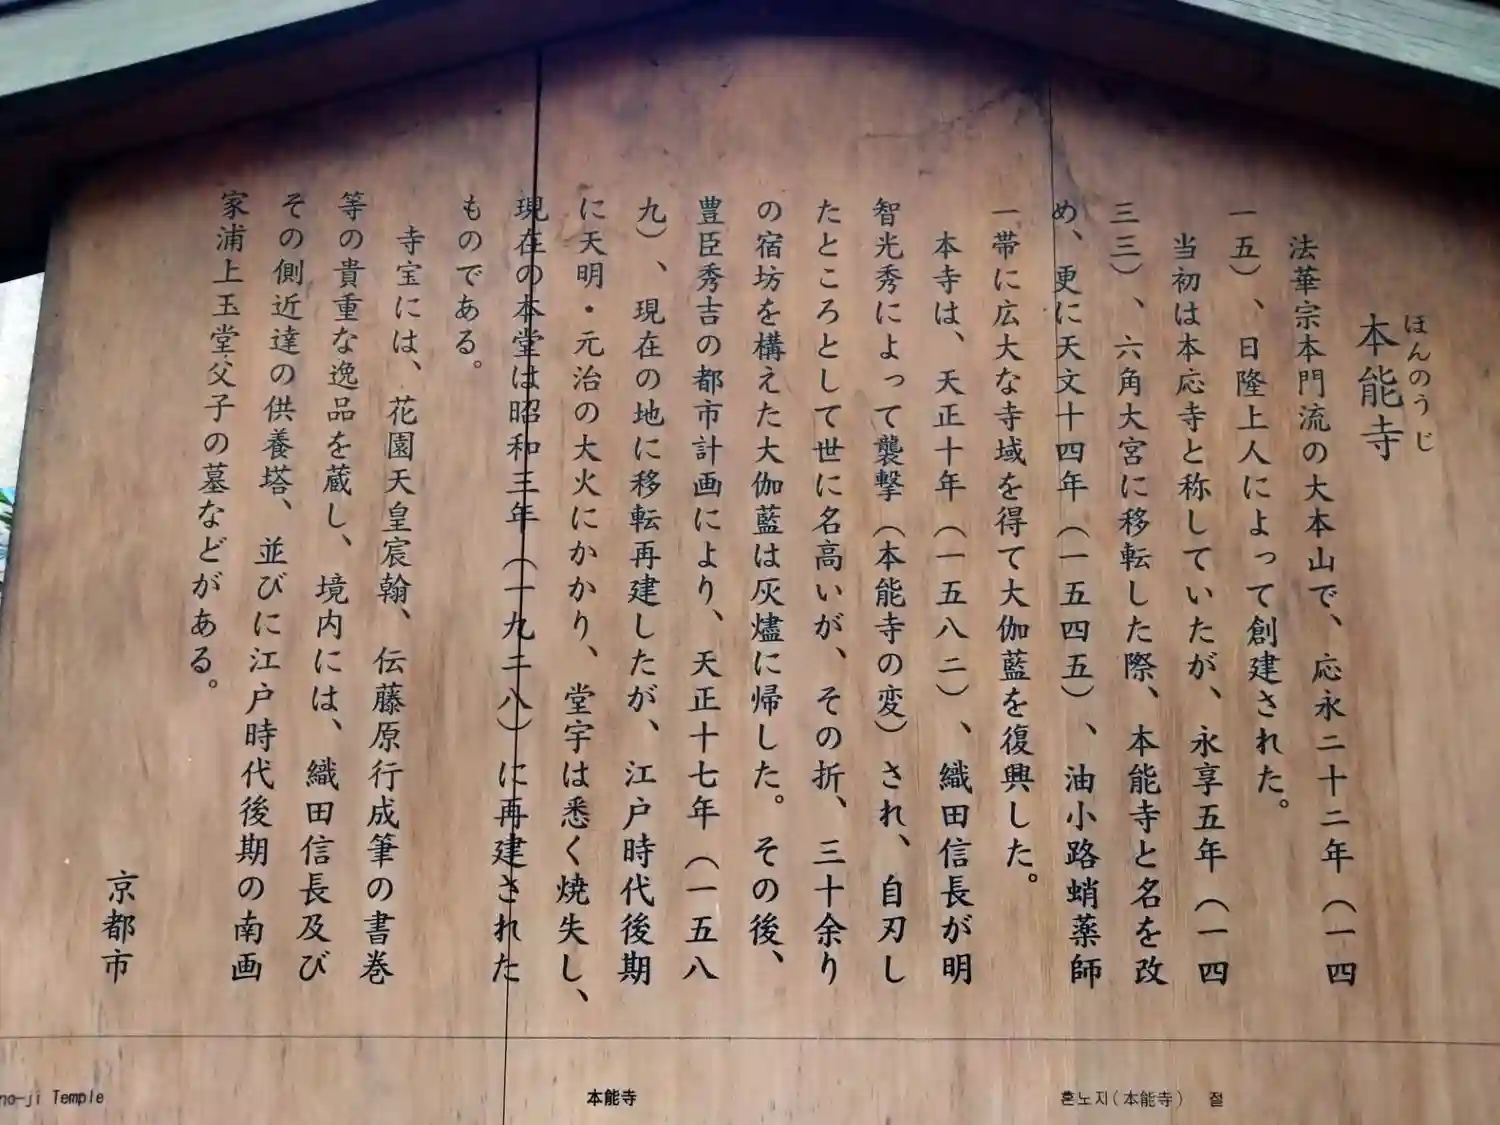 ほんのうじ
本能寺
法華宗本門流の大本山で、応永二十二年（一四
一五）、日隆上人によって創建された。
当初は本応寺と称していたが、永享五年（一四
三三）、六角大宮に移転した際、本能寺と名を改
め、更に天文十四年（一五四五）、油小路蛸薬師
一帯に広大な寺域を得て大伽藍を復興した。
本寺は、天正十年（一五八二）、織田信長が明
智光秀によって襲撃（本能寺の変）され、自刃し
たところとして世に名高いが、その折、三十余り
の宿坊を構えた大伽藍は灰燼に帰した。その後、
豊臣秀吉の都市計画により、天正十七年（一五八
九）、現在の地に移転再建したが、江戸時代後期
に天明・元治の大火にかかり、堂宇は悉く焼失し、
現在の本堂は昭和三年（一九二八）に再建された
ものである。
寺宝には、花園天皇宸翰、伝藤原行成筆の書巻
等の貴重な逸品を蔵し、境内には、織田信長及び
その側近達の供養塔、並びに江戸時代後期の南画
家浦上玉堂父子の墓などがある。
京都市
no-ji Temple
本能寺
혼노지(本能寺) 절